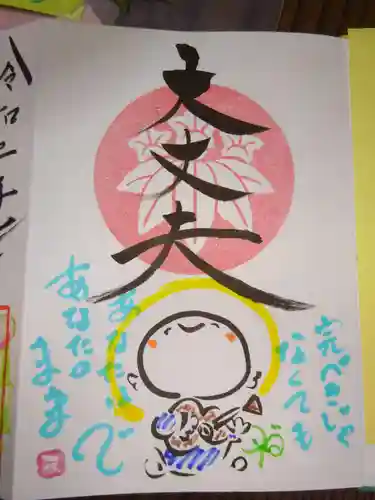 大丈夫
完ぺきじゃ
なくても
あなたは
あなたの
まま
で
令和